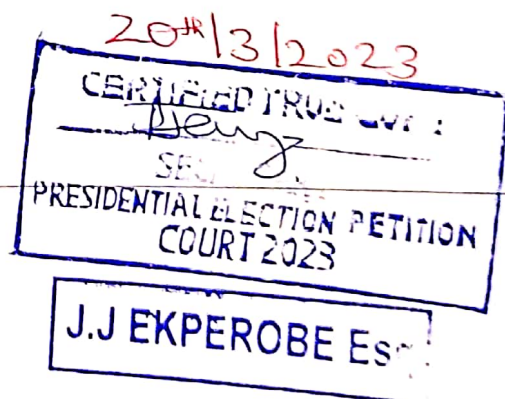 20th/3/2023
CERTIFIED TRUE COPY
PRESIDENTIAL ELECTION PETITION
COURT 2023
J.J EKPEROBE Esq.